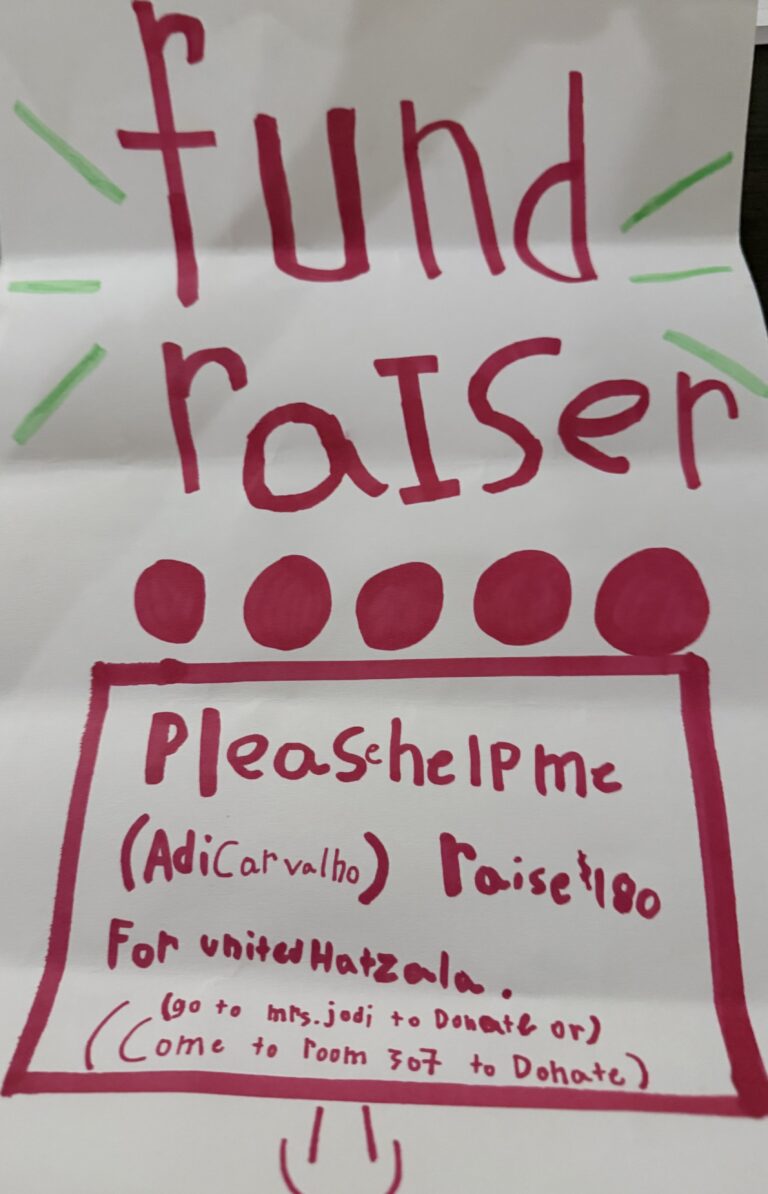 fund
raIser
Please help me
(Adi Carvalho) raise $180
For united Hatzala.
(go to mrs. jodi to Donate or)
(Come to room 307 to Donate)